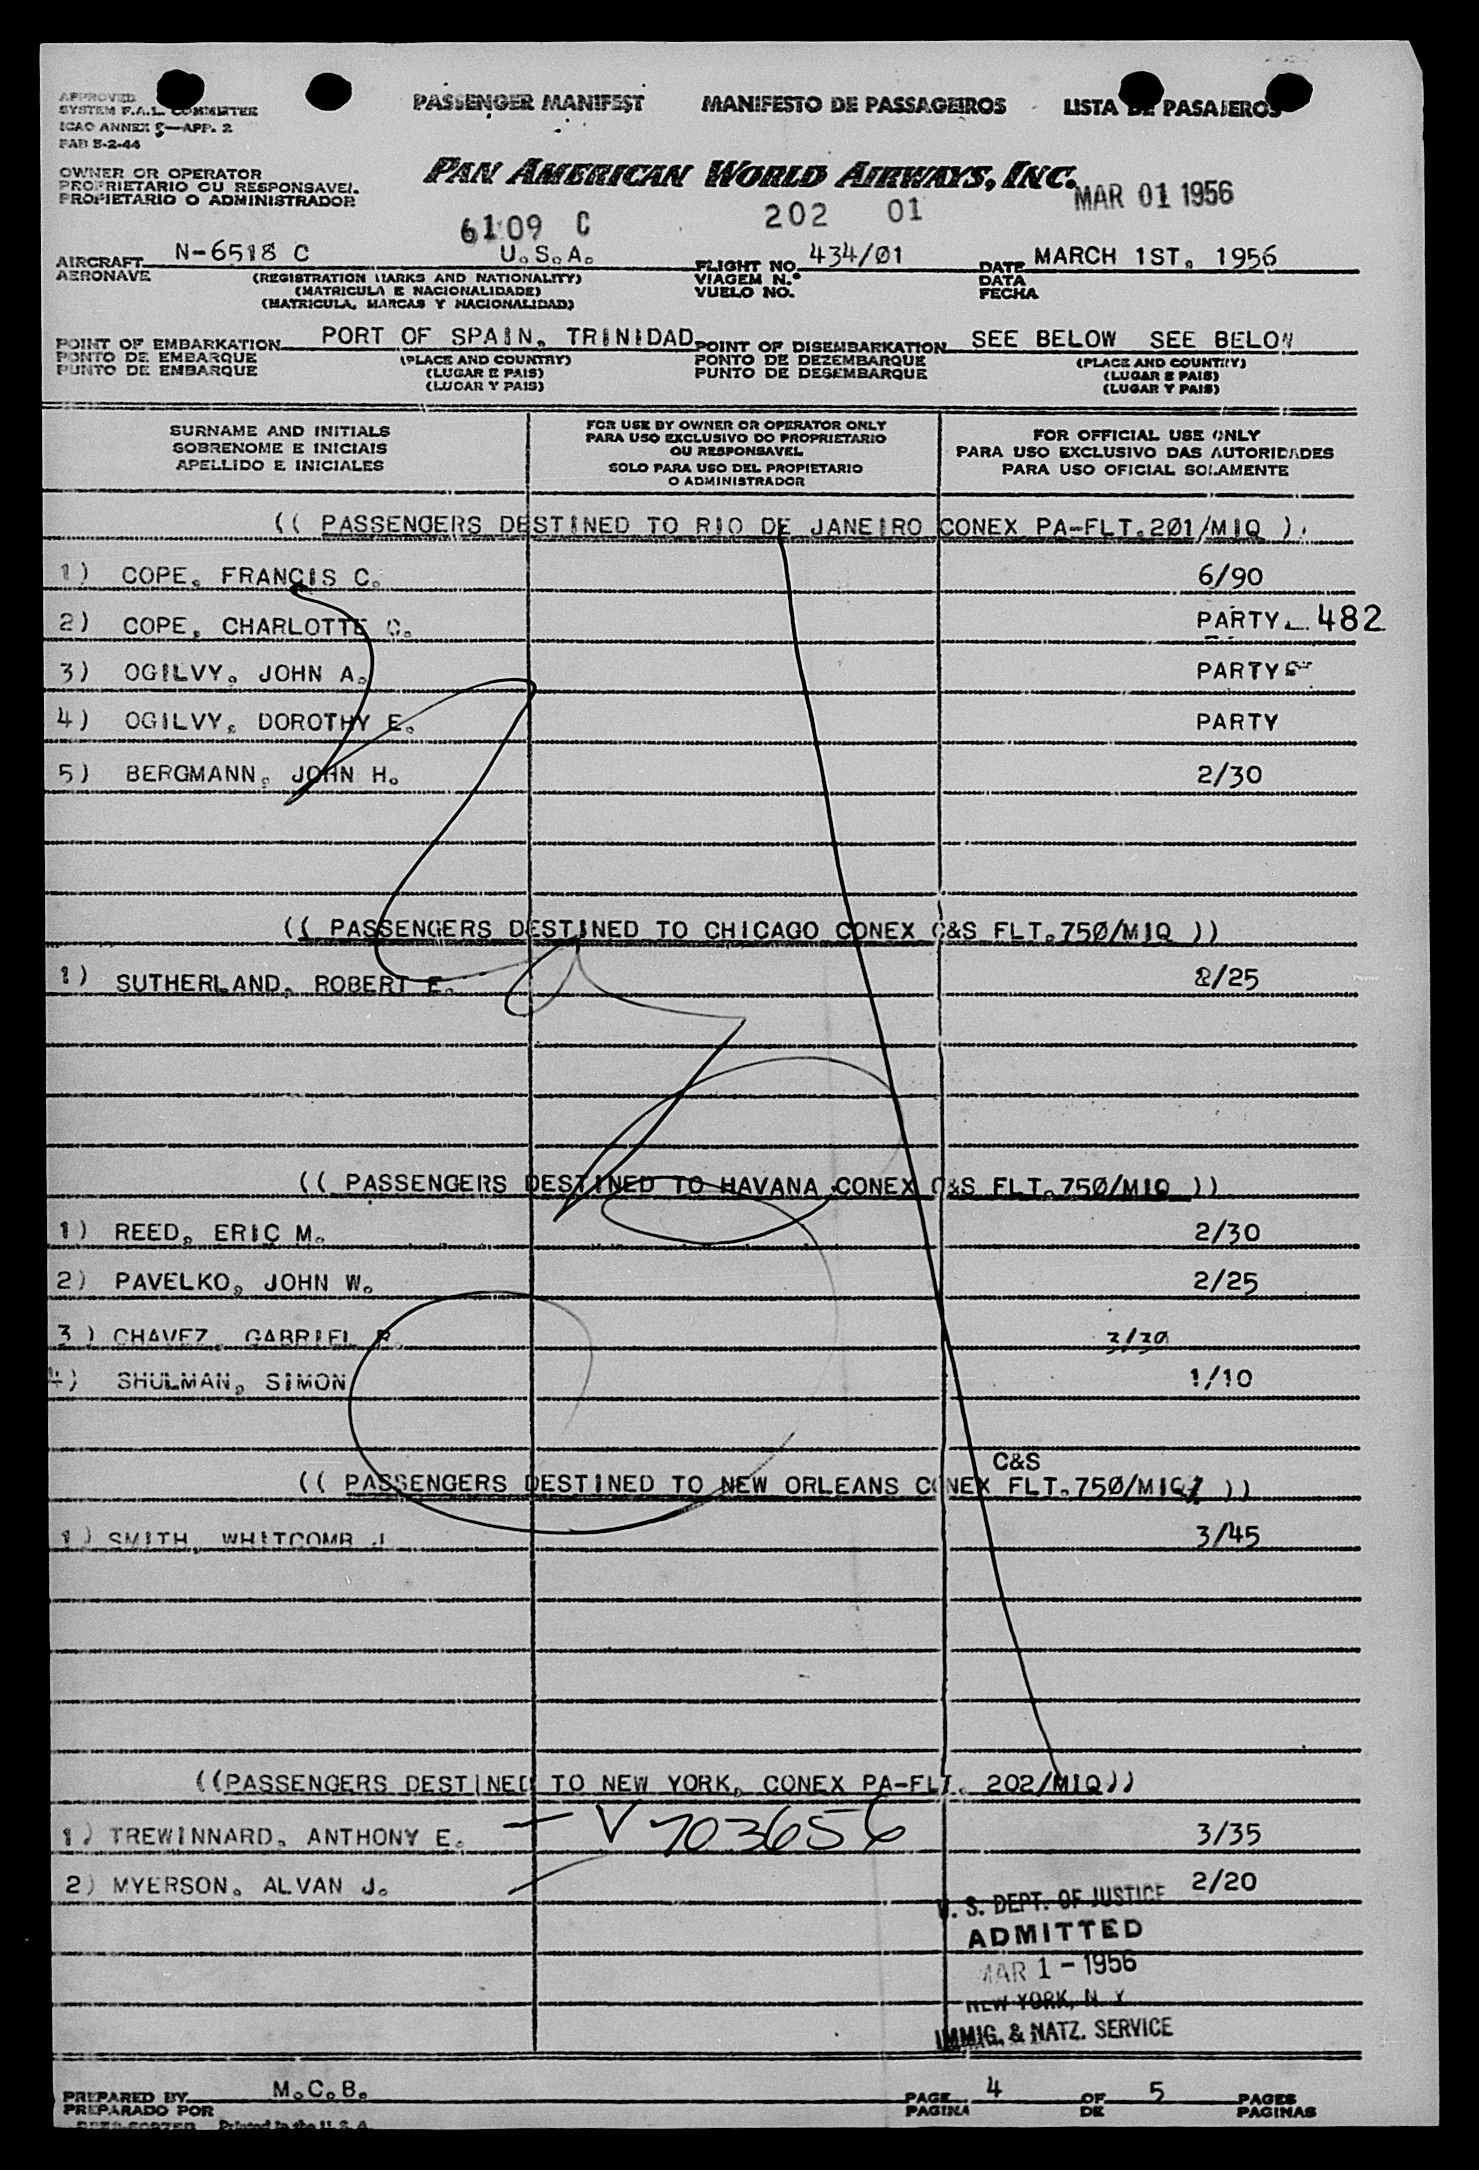 APPROVED
SYSTEM F.A.L. COMMITTEE
ICAO ANNEX 9—APP. 2
PASSENGER MANIFEST MANIFESTO DE PASSAGEIROS LISTA DE PASAJEROS
OWNER OR OPERATOR
PROPRIETARIO OU RESPONSAVEL
PROPIETARIO O ADMINISTRADOR
PAN AMERICAN WORLD AIRWAYS, INC.
MAR 01 1956
6109 C 202 01
AIRCRAFT N-6518 C U.S.A. FLIGHT NO. 434/01 DATE MARCH 1ST, 1956
AERONAVE (REGISTRATION MARKS AND NATIONALITY) VIAGEM N.° DATA
(MATRICULA E NACIONALIDADE) VUELO NO. FECHA
(MATRICULA, MARCAS Y NACIONALIDAD)
POINT OF EMBARKATION PORT OF SPAIN, TRINIDAD POINT OF DISEMBARKATION SEE BELOW SEE BELOW
PONTO DE EMBARQUE (PLACE AND COUNTRY) PONTO DE DEZEMBARQUE (PLACE AND COUNTRY)
PUNTO DE EMBARQUE (LUGAR E PAIS) PUNTO DE DESEMBARQUE (LUGAR E PAIS)
(LUGAR Y PAIS) (LUGAR Y PAIS)
SURNAME AND INITIALS
SOBRENOME E INICIAIS
APELLIDO E INICIALES
FOR USE BY OWNER OR OPERATOR ONLY
PARA USO EXCLUSIVO DO PROPRIETARIO
OU RESPONSAVEL
SOLO PARA USO DEL PROPIETARIO
O ADMINISTRADOR
FOR OFFICIAL USE ONLY
PARA USO EXCLUSIVO DAS AUTORIDADES
PARA USO OFICIAL SOLAMENTE
(( PASSENGERS DESTINED TO RIO DE JANEIRO CONEX PA-FLT.201/MIQ ))
1) COPE, FRANCIS C. 6/90
2) COPE, CHARLOTTE C. PARTY 482
3) OGILVY, JOHN A. PARTY
4) OGILVY, DOROTHY E. PARTY
5) BERGMANN, JOHN H. 2/30
(( PASSENGERS DESTINED TO CHICAGO CONEX C&S FLT.750/MIQ ))
1) SUTHERLAND, ROBERT E. 2/25
(( PASSENGERS DESTINED TO HAVANA CONEX C&S FLT.750/MIQ ))
1) REED, ERIC M. 2/30
2) PAVELKO, JOHN W. 2/25
3) CHAVEZ, GABRIEL R. 3/30
4) SHULMAN, SIMON 1/10
C&S
(( PASSENGERS DESTINED TO NEW ORLEANS CONEX FLT.750/MIQ ))
1) SMITH, WHITCOMB J. 3/45
((PASSENGERS DESTINED TO NEW YORK, CONEX PA-FLT. 202/MIQ))
1) TREWINNARD, ANTHONY E. — V 703656 3/35
2) MYERSON, ALVAN J. 2/20
U. S. DEPT. OF JUSTICE
ADMITTED
MAR 1 - 1956
NEW YORK, N. Y.
IMMIG. & NATZ. SERVICE
PREPARED BY M.C.B. PAGE 4 OF 5 PAGES
PREPARADO POR PAGINA DE PAGINAS
Printed in the U. S. A.